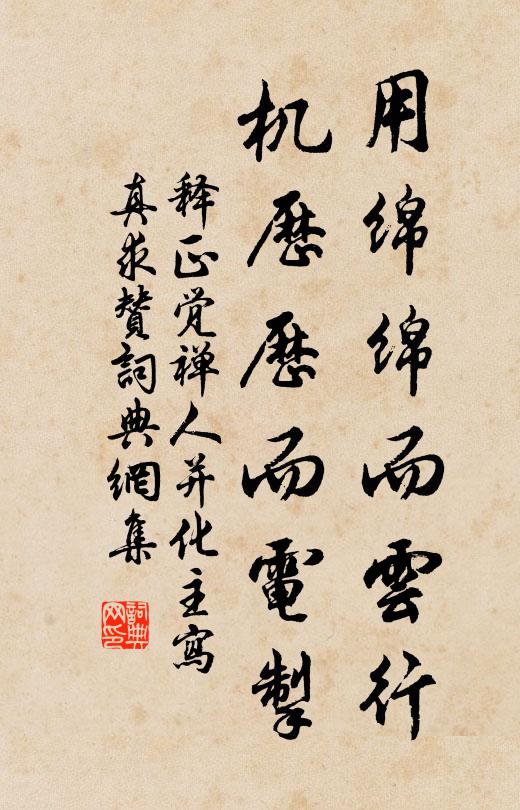 用绵绵而雲行
机歷歷而電掣
释正觉禅人并化主寫
真求赞詞典網集
詞典网印